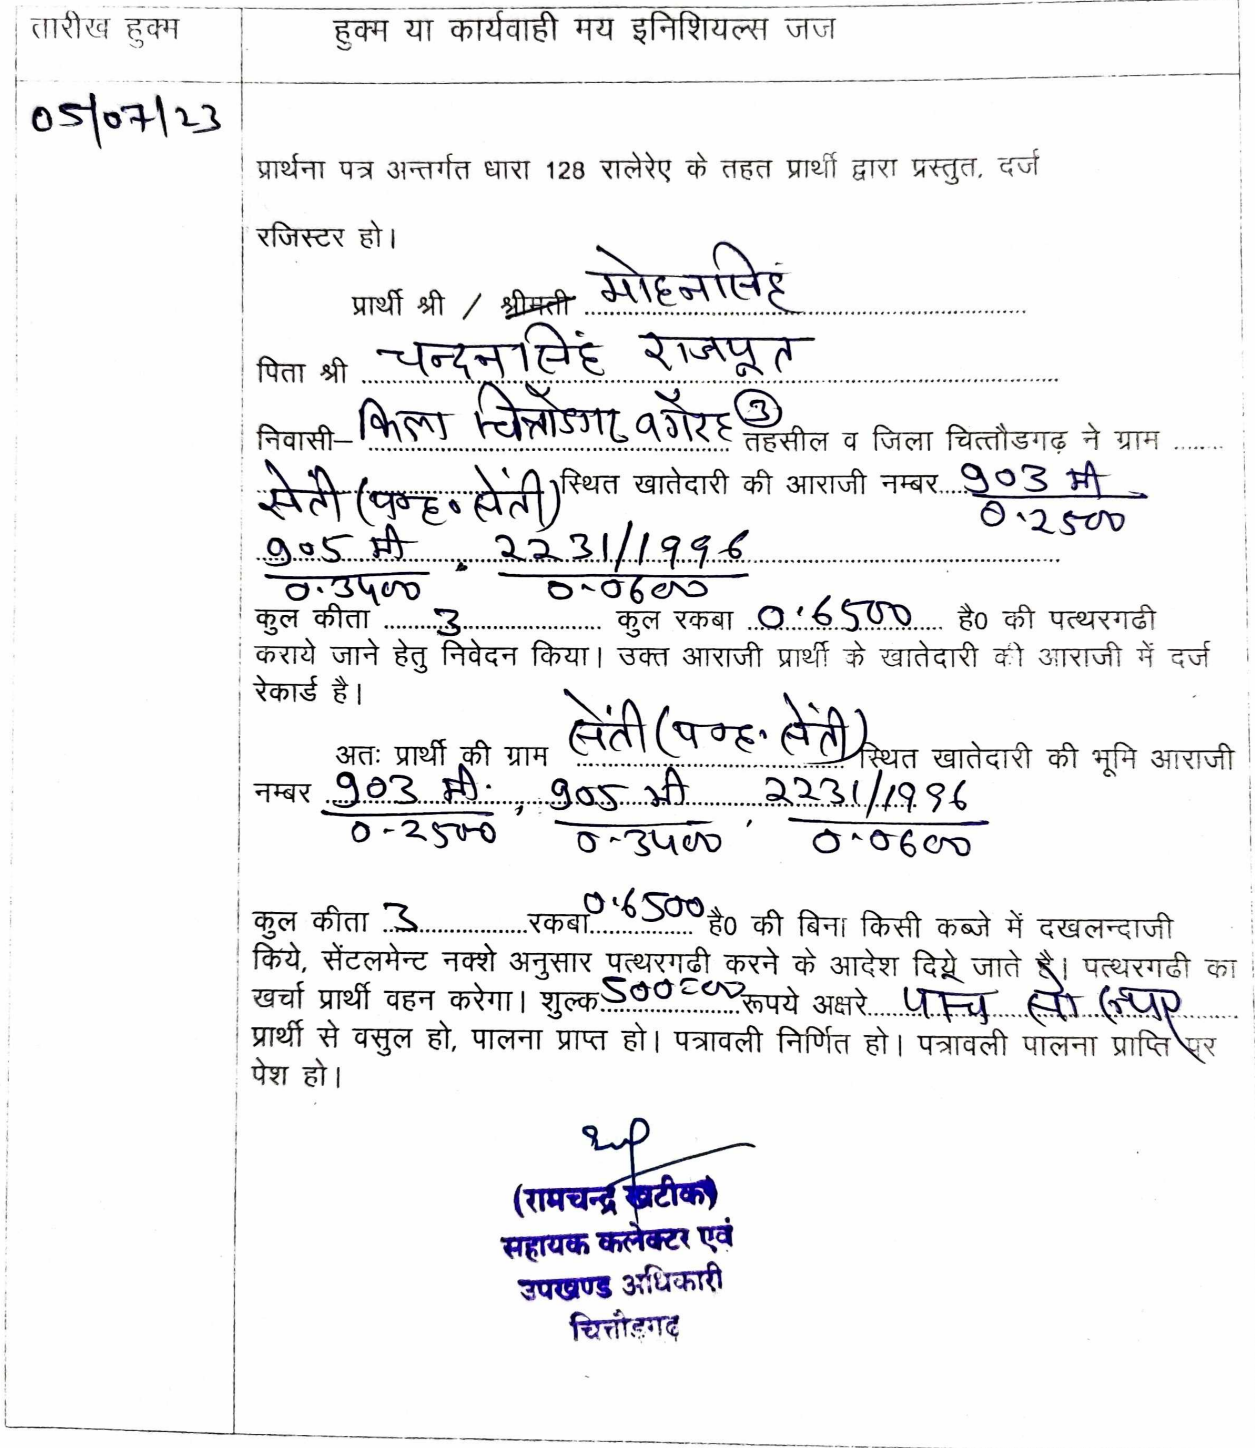 तारीख हुक्म
हुक्म या कार्यवाही मय इनिशियल्स जज
05/07/23
प्रार्थना पत्र अन्तर्गत धारा 128 रालेरेए के तहत प्रार्थी द्वारा प्रस्तुत, दर्ज
रजिस्टर हो।
प्रार्थी श्री / श्रीमती मोहनसिंह
पिता श्री चन्दनसिंह राजपूत
निवासी– किला चित्तौडगढ वगैरह (3) तहसील व जिला चित्तौडगढ़ ने ग्राम .......
सेंती (प०ह० सेंती) स्थित खातेदारी की आराजी नम्बर 903 मी
0.2500
905 मी , 2231/1996
0.3400 0-0600
कुल कीता 3 कुल रकबा 0.6500 है0 की पत्थरगढी
कराये जाने हेतु निवेदन किया। उक्त आराजी प्रार्थी के खातेदारी की आराजी में दर्ज
रेकार्ड है।
अतः प्रार्थी की ग्राम सेंती (प०ह० सेंती) स्थित खातेदारी की भूमि आराजी
नम्बर 903 मी. , 905 मी , 2231/1996
0-2500 0-3400 0-0600
कुल कीता 3 रकबा 0.6500 है0 की बिना किसी कब्जे में दखलन्दाजी
किये, सेंटलमेन्ट नक्शे अनुसार पत्थरगढी करने के आदेश दिये जाते है। पत्थरगढी का
खर्चा प्रार्थी वहन करेगा। शुल्क 500=00 रूपये अक्षरे पान्च सो रूपए
प्रार्थी से वसुल हो, पालना प्राप्त हो। पत्रावली निर्णित हो। पत्रावली पालना प्राप्ति पर
पेश हो।
(रामचन्द्र खटीक)
सहायक कलेक्टर एवं
उपखण्ड अधिकारी
चित्तौड़गढ़